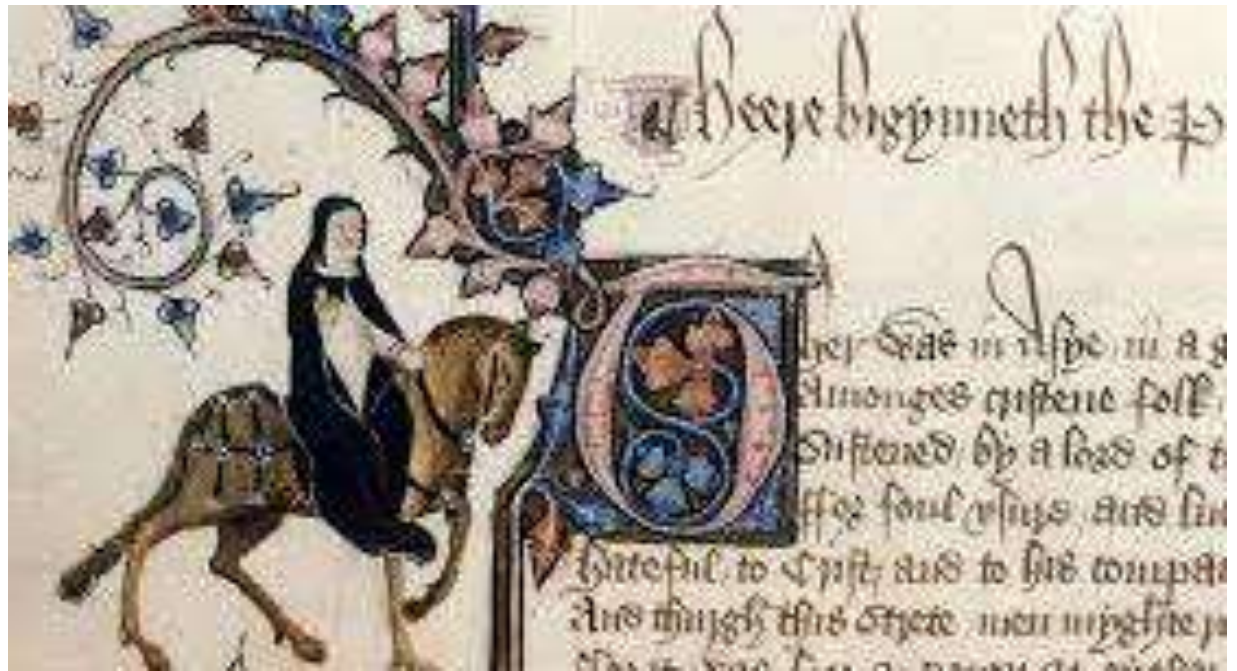 Heere bigynneth the P
Ther was in Asye in a g
Amonges cristene folk
Sustened by a lord of t
ffor foul vsure and luc
Hateful to Crist and to his compai
And thurgh this Strete men myghte r